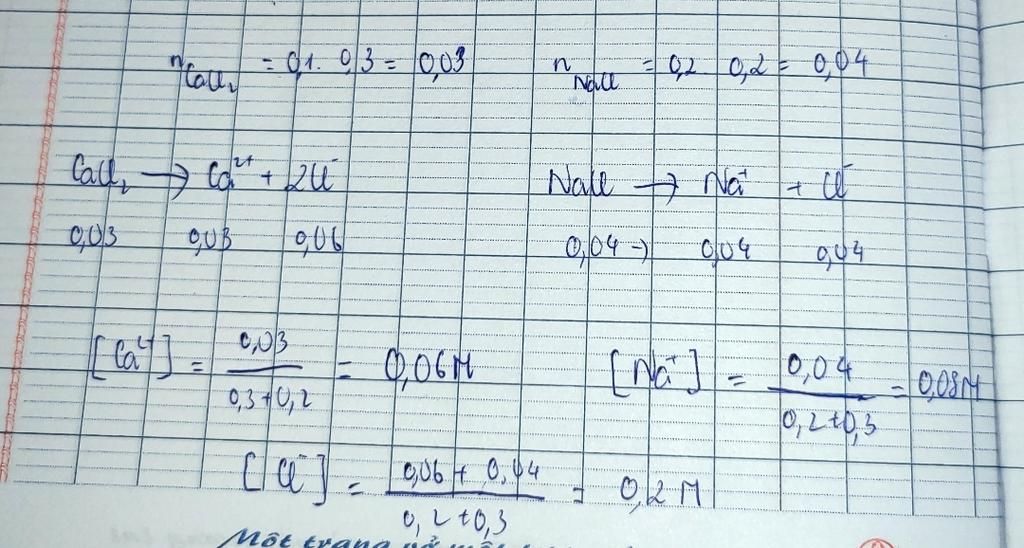 n CaCl₂ = 0,1. 0,3 = 0,03 n NaCl = 0,2 0,2 = 0,04
CaCl₂ → Ca²⁺ + 2Cl⁻ NaCl → Na⁺ + Cl⁻
0,03 0,03 0,06 0,04 → 0,04 0,04
[Ca²⁺] = 0,03 / 0,3+0,2 = 0,06M [Na⁺] = 0,04 / 0,2+0,3 = 0,08M
[Cl⁻] = 0,06 + 0,04 / 0,2+0,3 = 0,2 M
Một trang vở